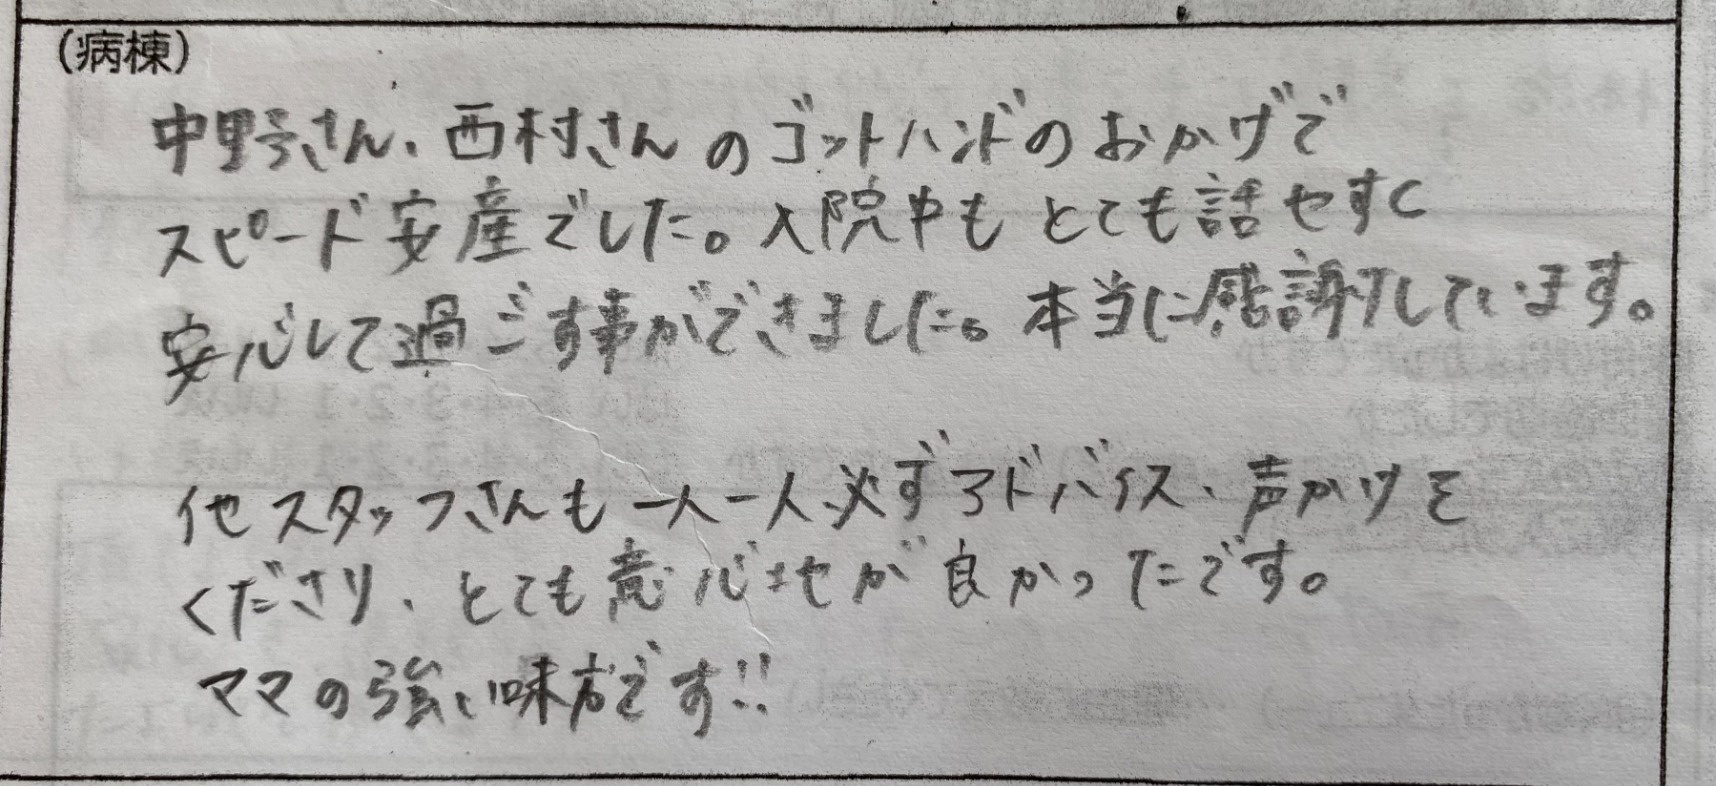 (病棟)
中野さん、西村さんのゴットハンドのおかげで
スピード安産でした。入院中もとても話せすく
安心して過ごす事ができました。本当に感謝しています。
他スタッフさんも一人一人必ずアドバイス、声かけを
くださり、とても意心地が良かったです。
ママの強い味方です!!